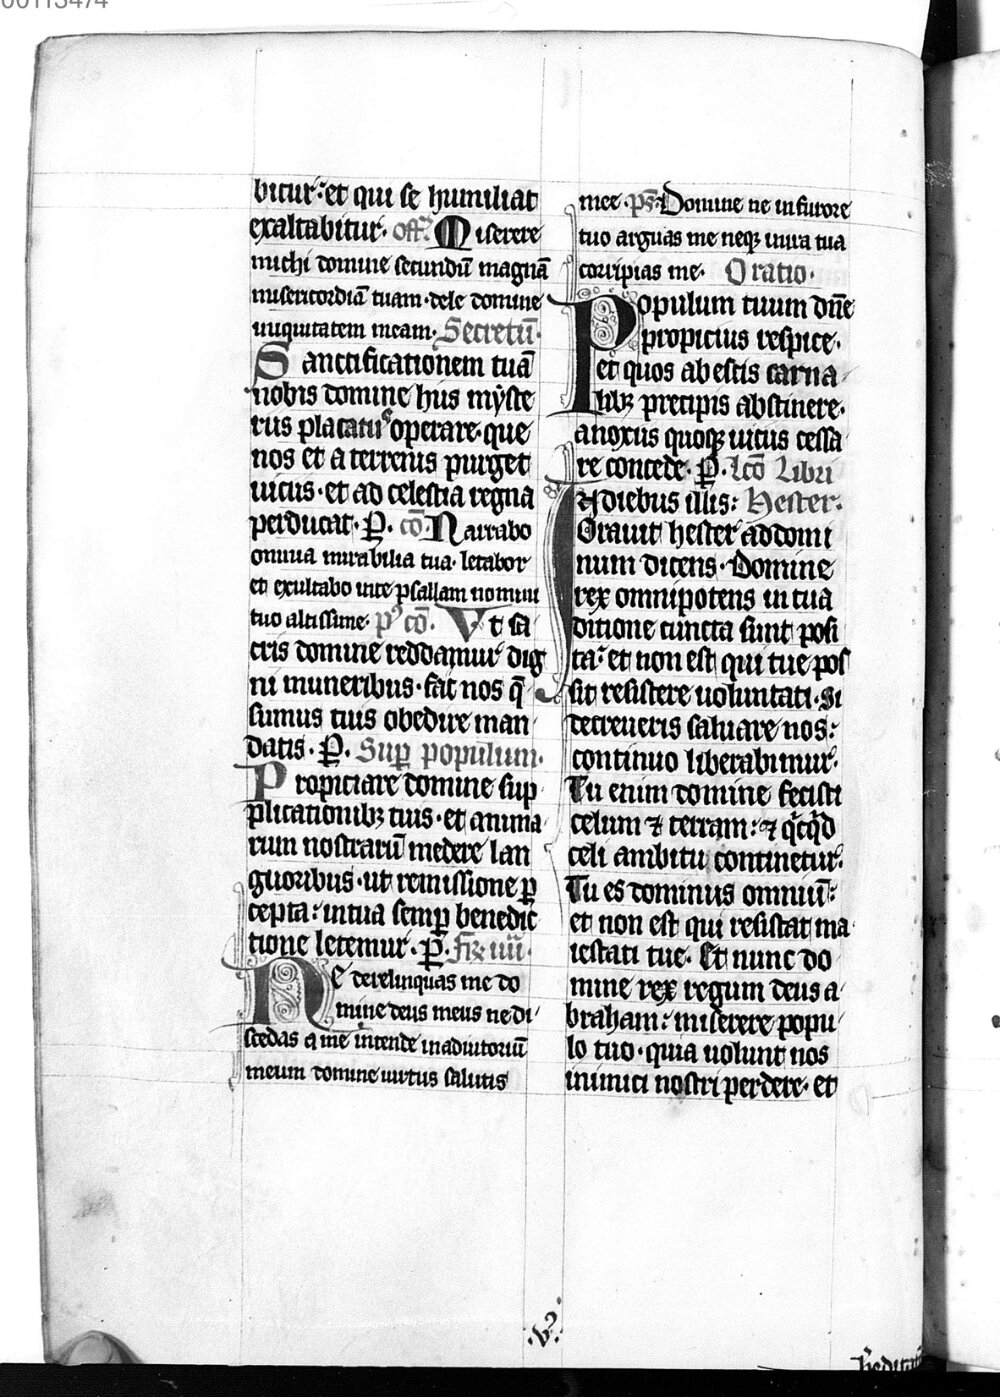 00113474
bitur: et qui se humiliat
exaltabitur. off. Miserere
michi domine secundū magnā
misericordiā tuam. dele domine
iniquitatem meam. Secretū.
Sanctificationem tuā
nobis domine hiis myste
riis placatus operare. que
nos et a terrenis purget
uiciis. et ad celestia regna
perducat. P̄. cō. Narrabo
omnia mirabilia tua. letabor
et exultabo in te psallam nomini
tuo altissime. p9 cō. Vt sa
cris domine reddamur dig
ni muneribus. fac nos q̄
sumus tuis obedire man
datis. P̄. Sup populum.
Propiciare domine sup
plicationibꝫ tuis. et anima
rum nostrarū medere lan
guoribus. ut remissione ꝑ
cepta: in tua semꝑ benedic
tione letemur. P̄. fr̄ iiii.
Ne derelinquas me do
mine deus meus ne di
scedas a me intende in adiutoriū
meum domine uirtus salutis
mee. ps̄. Domine ne in furore
tuo arguas me neqꝫ in ira tua
corripias me. Oratio.
Populum tuum dn̄e
propicius respice.
et quos ab escis carna
libꝫ precipis abstinere.
a noxiis quoqꝫ uiciis cessa
re concede. P̄. lcō Libri
In diebus illis: Hester.
Orauit hester ad domi
num dicens. Domine
rex omnipotens in tua
ditione cuncta sunt posi
ta: et non est qui tue pos
sit resistere uoluntati. si
decreueris saluare nos:
continuo liberabimur.
Tu enim domine fecisti
celum ⁊ terram: ⁊ qicqid
celi ambitu continetur.
Tu es dominus omniū:
et non est qui resistat ma
iestati tue. Et nunc do
mine rex regum deus a
braham: miserere popu
lo tuo. quia uolunt nos
inimici nostri perdere. et